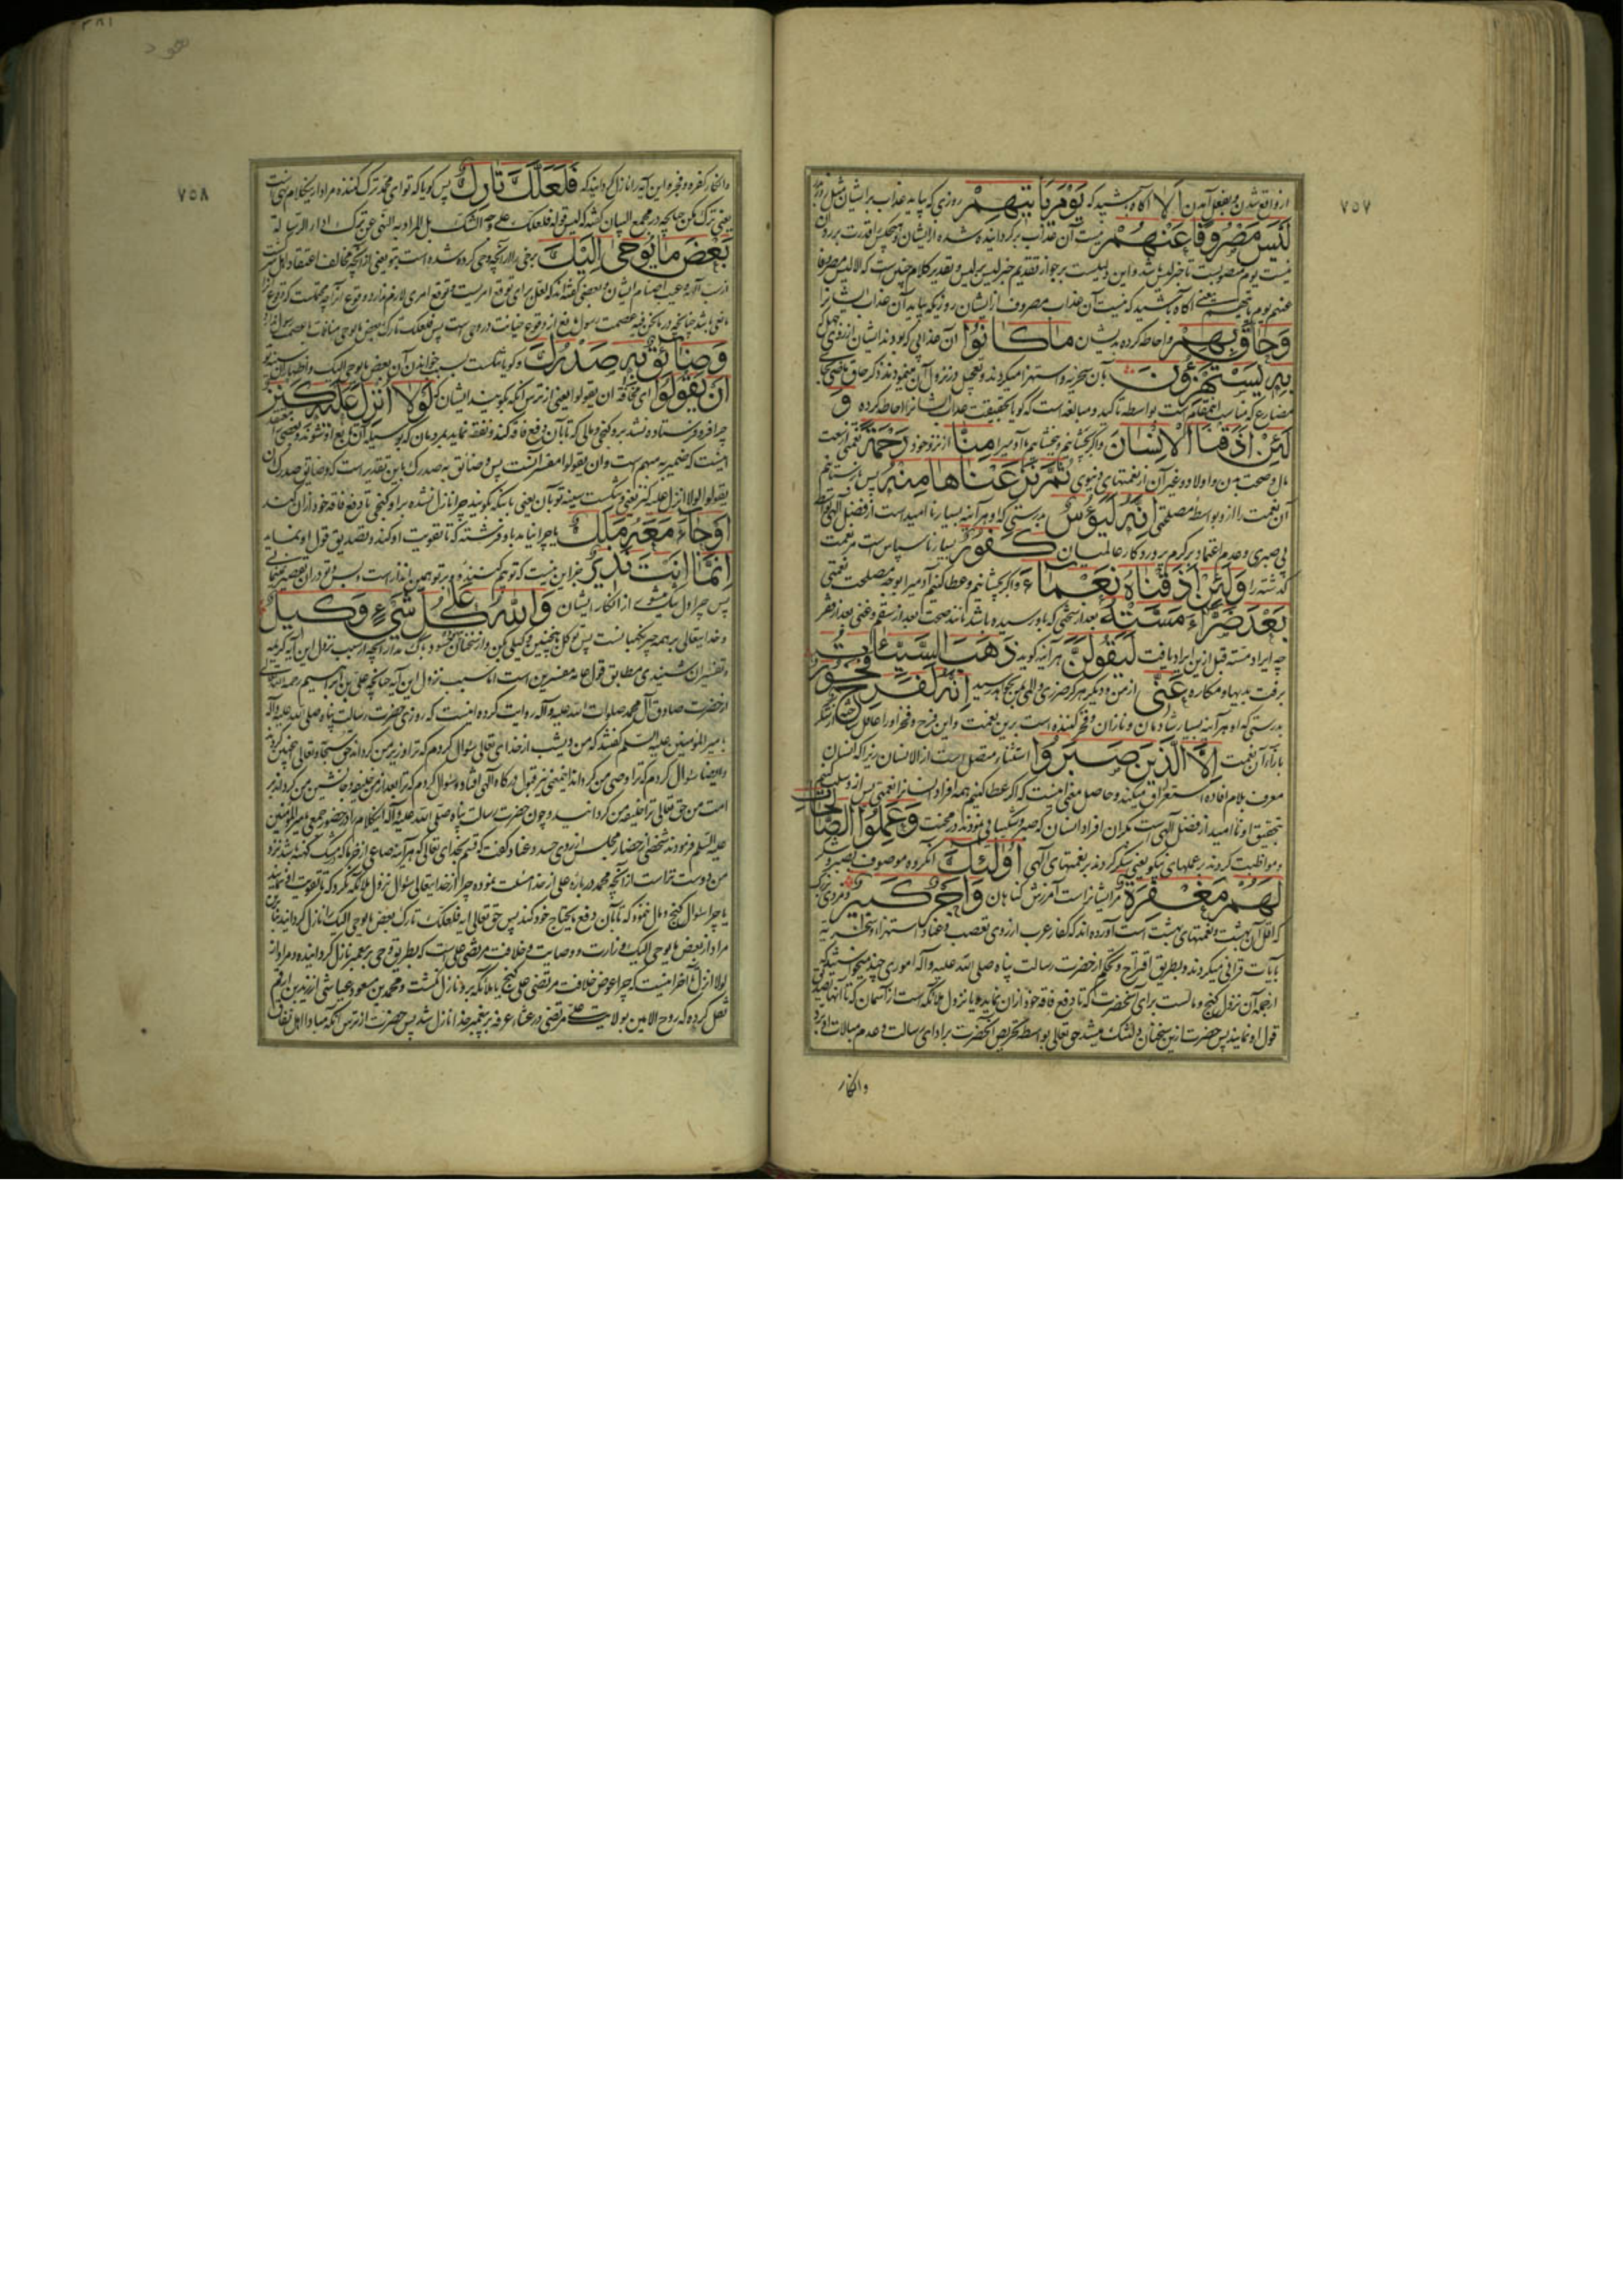 ٧٥٧
از واقع شدن و بفعل آمدن اَلا آگاه باشید که یَوْمَ یَاْتیهِمْ روزی که بیاید عذاب برایشان مثل روز
لَیْسَ مَصْرُوفًا عَنْهُمْ نیست آن عذاب برگردانیده شده از ایشان و هیچکس را قدرت بر رد آن
نیست یوم منصوبست بخبر لیس و این دلیلست بر جواز تقدیم خبر لیس بر لیس و تقدیر کلام چنین است که الا لیس مصروفا
عنهم یوم یاتیهم یعنی آگاه باشید که نیست آن عذاب مصروف از ایشان روزیکه بیاید آن عذاب ایشانرا
وَحاقَ بِهِمْ و احاطه کرده بدیشان ما کانُوا آن عذابی که بودند ایشان از روی جهل که
بِهِ یَسْتَهْزِءُونَ بآن سخریه و استهزا میکردند و تعجیل در نزول آن مینمودند ذکر حاق ماضی بجای
مضارع که مناسب این مقام است بواسطه تاکید و مبالغه است که گویا بحقیقت عذاب ایشانرا احاطه کرده وَ
لَئِنْ اَذَقْنَا الْاِنْسانَ و اگر بچشانیم و ببخشیم آدمیرا مِنّا از نزد خود رَحْمَةً نعمتی از سعت
مال و صحت بدن و اولاد و غیر آن از نعمتهای دنیوی ثُمَّ نَزَعْناها مِنْهُ پس باز ستانیم
آن نعمت را ازو بواسطه مصلحتی اِنَّهُ لَیَؤُسٌ بدرستی که او هر آینه بسیار ناامیدست از فضل الهی بواسطه
بی صبری و عدم اعتماد بر کرم پروردگار عالمیان کَفُورٌ بسیار ناسپاس است مر نعمت
گذشته را وَلَئِنْ اَذَقْناهُ نَعْماءَ و اگر بچشانیم و عطا کنیم آدمیرا بوجه مصلحت نعمتی
بَعْدَ ضَرّاءَ مَسَّتْهُ بعد از سختی که باو رسیده باشد مانند صحت بعد از سقم و غنی بعد از فقر
چه ایراد مسته قبل ازین ایراد یافت لَیَقُولَنَّ هر آینه گوید ذَهَبَ السَّیِّئاتُ
برفت بدیها و مکاره عَنّی از من و دیگر هرگز ضرری و المی بمن نخواهد رسید اِنَّهُ لَفَرِحٌ فَخُورٌ
بدرستی که او هر آینه بسیار شادمان و نازان و فخر کننده است برین نعمت و این فرح و فخر او را غافل ساخته از شکر
بازاء آن نعمت اِلَّا الَّذینَ صَبَرُوا استثناء متصل است از الانسان زیرا که انسان
معرف بلام افاده استغراق میکند و حاصل معنی اینست که اگر عطا کنیم همه افراد انسانرا نعمتی پس ازو سلب کنیم
بتحقیق او ناامید از فضل الهی است مگر آن افراد انسان که صبر و شکیبایی نمودند در محنت وَعَمِلُوا الصّالِحاتِ
و مواظبت کردند بر عملهای نیکو یعنی شکر کردند بر نعمتهای الهی اُولئِکَ آنگروه موصوف بصبر و شکر
لَهُمْ مَغْفِرَةٌ مر ایشانراست آمرزش گناهان وَاَجْرٌ کَبیرٌ و مزدی بزرگ
که اقل آن بهشت و نعمتهای بهشت است آورده اند که کفار عرب از روی تعصب و عناد استهزا و سخریه
بآیات قرآنی میکردند و بطریق اقتراح و تحکم از حضرت رسالت پناه صلی الله علیه و آله اموری چند میخواستند
از جمله آن نزول گنج و مالست برای آنحضرت که تا دفع فاقه خود از آن نماید و یا نزول ملائکه است از آسمان که تا آنها تصدیق
قول او نمایند پس حضرت ازین سخنان دلتنگ میشد حق تعالی بواسطه تحریض آنحضرت بر ادای رسالت و عدم مبالات او برد
و انکار
٧٥٨
و انکار کفره و فجره این آیه را نازل گردانید که فَلَعَلَّکَ تارِکٌ پس گویا که تو ای محمد ترک کننده مراد ازین کلام نهی است
یعنی ترک مکن چنانچه در مجمع البیان گفته که لیس قوله فلعلک علی وجه الشک بل المراد به النهی عن ترک اداء الرسالة
بَعْضَ ما یُوحی اِلَیْکَ برخی را از آنچه وحی کرده شده است بتو یعنی از آنچه مخالف اعتقاد اهل شرکست
وَضائِقٌ بِهِ صَدْرُکَ و گویا تنگست بسبب خواندن آن بعض ما یوحی الیک و اظهار آن سینه تو
اَنْ یَقُولُوا ای مخافة ان یقولوا یعنی از ترس آنکه گویند ایشان که لَوْلا اُنْزِلَ عَلَیْهِ کَنْزٌ
چرا فرو فرستاده نشد برو گنجی و مالی که تا بآن دفع فاقه کند و نفقه نماید بمردمان که بوسیله آن تابع او شوند و بعضی گفته‌اند
اینست که ضمیر به مبهم است و ان یقولوا مفسر آنست پس و ضائق به صدرک باین تقدیر است که و ضائق صدرک بان
یقولوا لولا انزل علیه کنز یعنی و تنگست سینه تو بآن یعنی باینکه بگویند چرا نازل نشده بر او گنجی تا دفع فاقه خود ازان کند
اَوْ جاءَ مَعَهُ مَلَکٌ یا چرا نیامد باو فرشته که تا تقویت او کند و تصدیق قول او نماید
اِنَّما اَنْتَ نَذیرٌ جز این نیست که تو بیم کننده و بر تو همین انذار است
پس چرا دل تنگ میشوی از انکار ایشان وَاللّهُ عَلی کُلِّ شَیْءٍ وَکیلٌ
و خدایتعالی بر همه چیز نگهبانست پس توکل
و تفسیر آن شنیدی مطابق قول عامه مفسرین است اما سبب نزول این آیه چنانچه علی بن ابراهیم رحمه الله تعالی
از حضرت صادق آل محمد صلوات الله علیه و آله روایت کرده اینست که روزی حضرت رسالت پناه صلی الله علیه و آله
بامیر المؤمنین علیه السلم گفتند که من دیشب از خدای تعالی سؤال کردم که ترا وزیر من گرداند حق سبحانه و تعالی اینچنین کرد
و ایضا سؤال کردم که ترا وصی من گرداند این معنی نیز قبول درگاه الهی افتاد و سؤال کردم که ترا بعد از من خلیفه و جانشین من گرداند بر
امت من حق تعالی ترا خلیفه من گردانید و چون حضرت رسالت پناه صلی الله علیه و آله این کلام را در حضور جمعی بامیر المؤمنین
علیه السلم فرمودند شخصی از حضار مجلس از روی حسد و عناد گفت که قسم بخدای تعالی که هر آینه صاعی از خرما که در مشک کهنه باشد نزد
من دوست تراست از آنچه محمد در باره علی از خدا مسئلت نموده چرا از خدایتعالی سؤال نزول ملائکه نکرد که تا تقویت او نمایند
یا چرا سؤال گنج و مال ننمود که تا بآن دفع مایحتاج خود کند پس حق تعالی آیه فلعلک تارک بعض ما یوحی الیک را نازل گردانید بنابرین
مراد از بعض ما یوحی الیک وزارت و وصایت و خلافت مرتضی علی است که بطریق وحی بر پیغمبر نازل گردانیده و مراد از
لولا انزل تا آخر اینست که چرا عوض خلافت مرتضی علی گنج یا ملائکه برو نازل نگشت و محمد بن مسعود عیاشی از زید بن ارقم
نقل کرده که روح الامین بولایت علی مرتضی در عشاء عرفه بر پیغمبر خدا نازل شد پس حضرت از ترس آنکه مبادا اهل نفاق